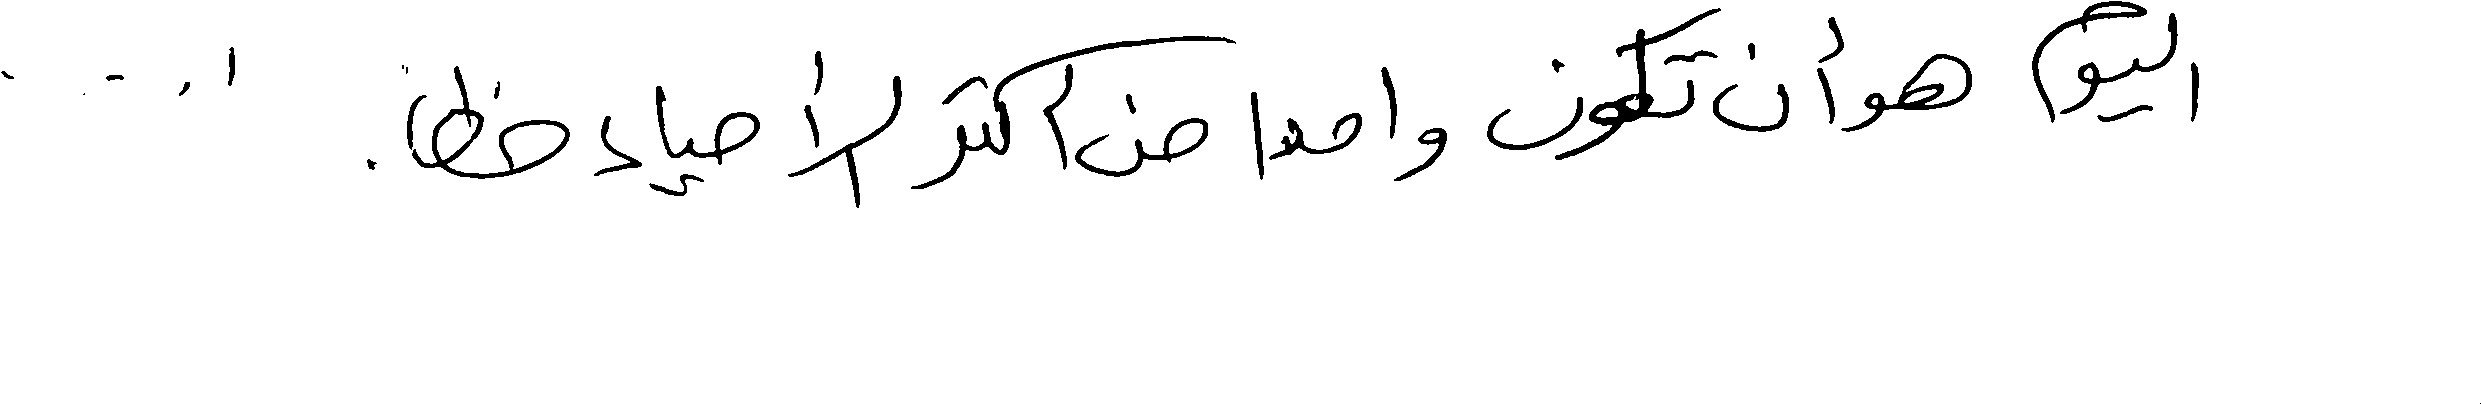 اليوم هو أن تكون واحدا من أكثر الأجياد حظا.